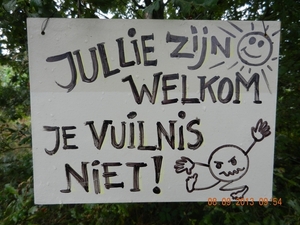 JULLIE ZIJN
WELKOM
JE VUILNIS
NIET!
08.09.2013 09:54